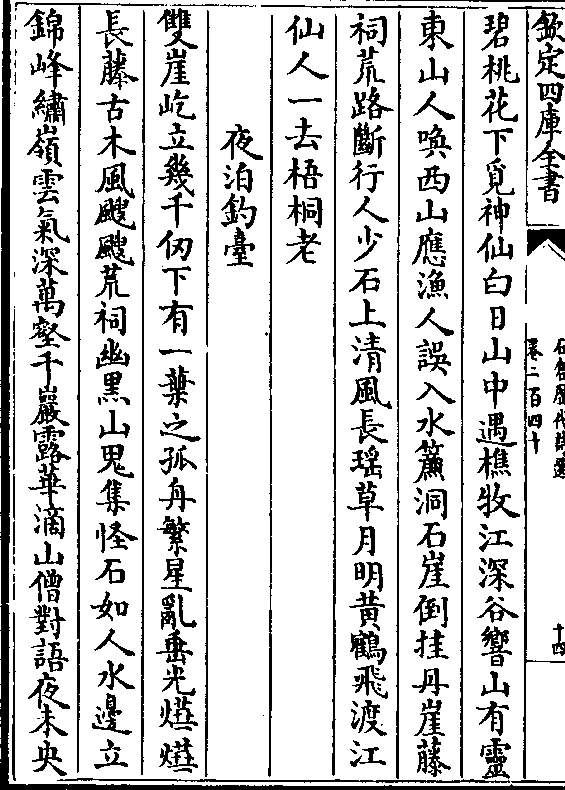 欽定四庫全書
石倉歷代詩選
卷二百四十
十四
碧桃花下覓神仙白日山中遇樵牧江深谷響山有靈
東山人喚西山應漁人誤入水簾洞石崖倒挂丹崖藤
祠荒路斷行人少石上清風長瑶草月明黄鶴飛渡江
仙人一去梧桐老
夜泊釣臺
雙崖屹立幾千仞下有一葉之孤舟繁星亂垂光燄燄
長藤古木風颼颼荒祠幽黑山鬼集怪石如人水邊立
錦峰繡嶺雲氣深萬壑千巖露華滴山僧對語夜未央